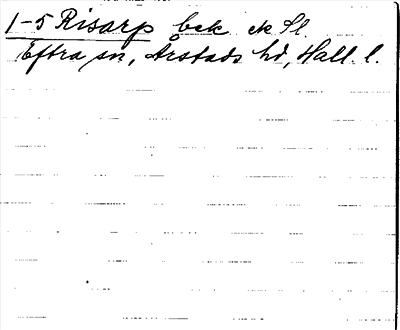 1-5 Risarp bek ek Sl.
Eftra sn, Årstads hd, Hall. l.